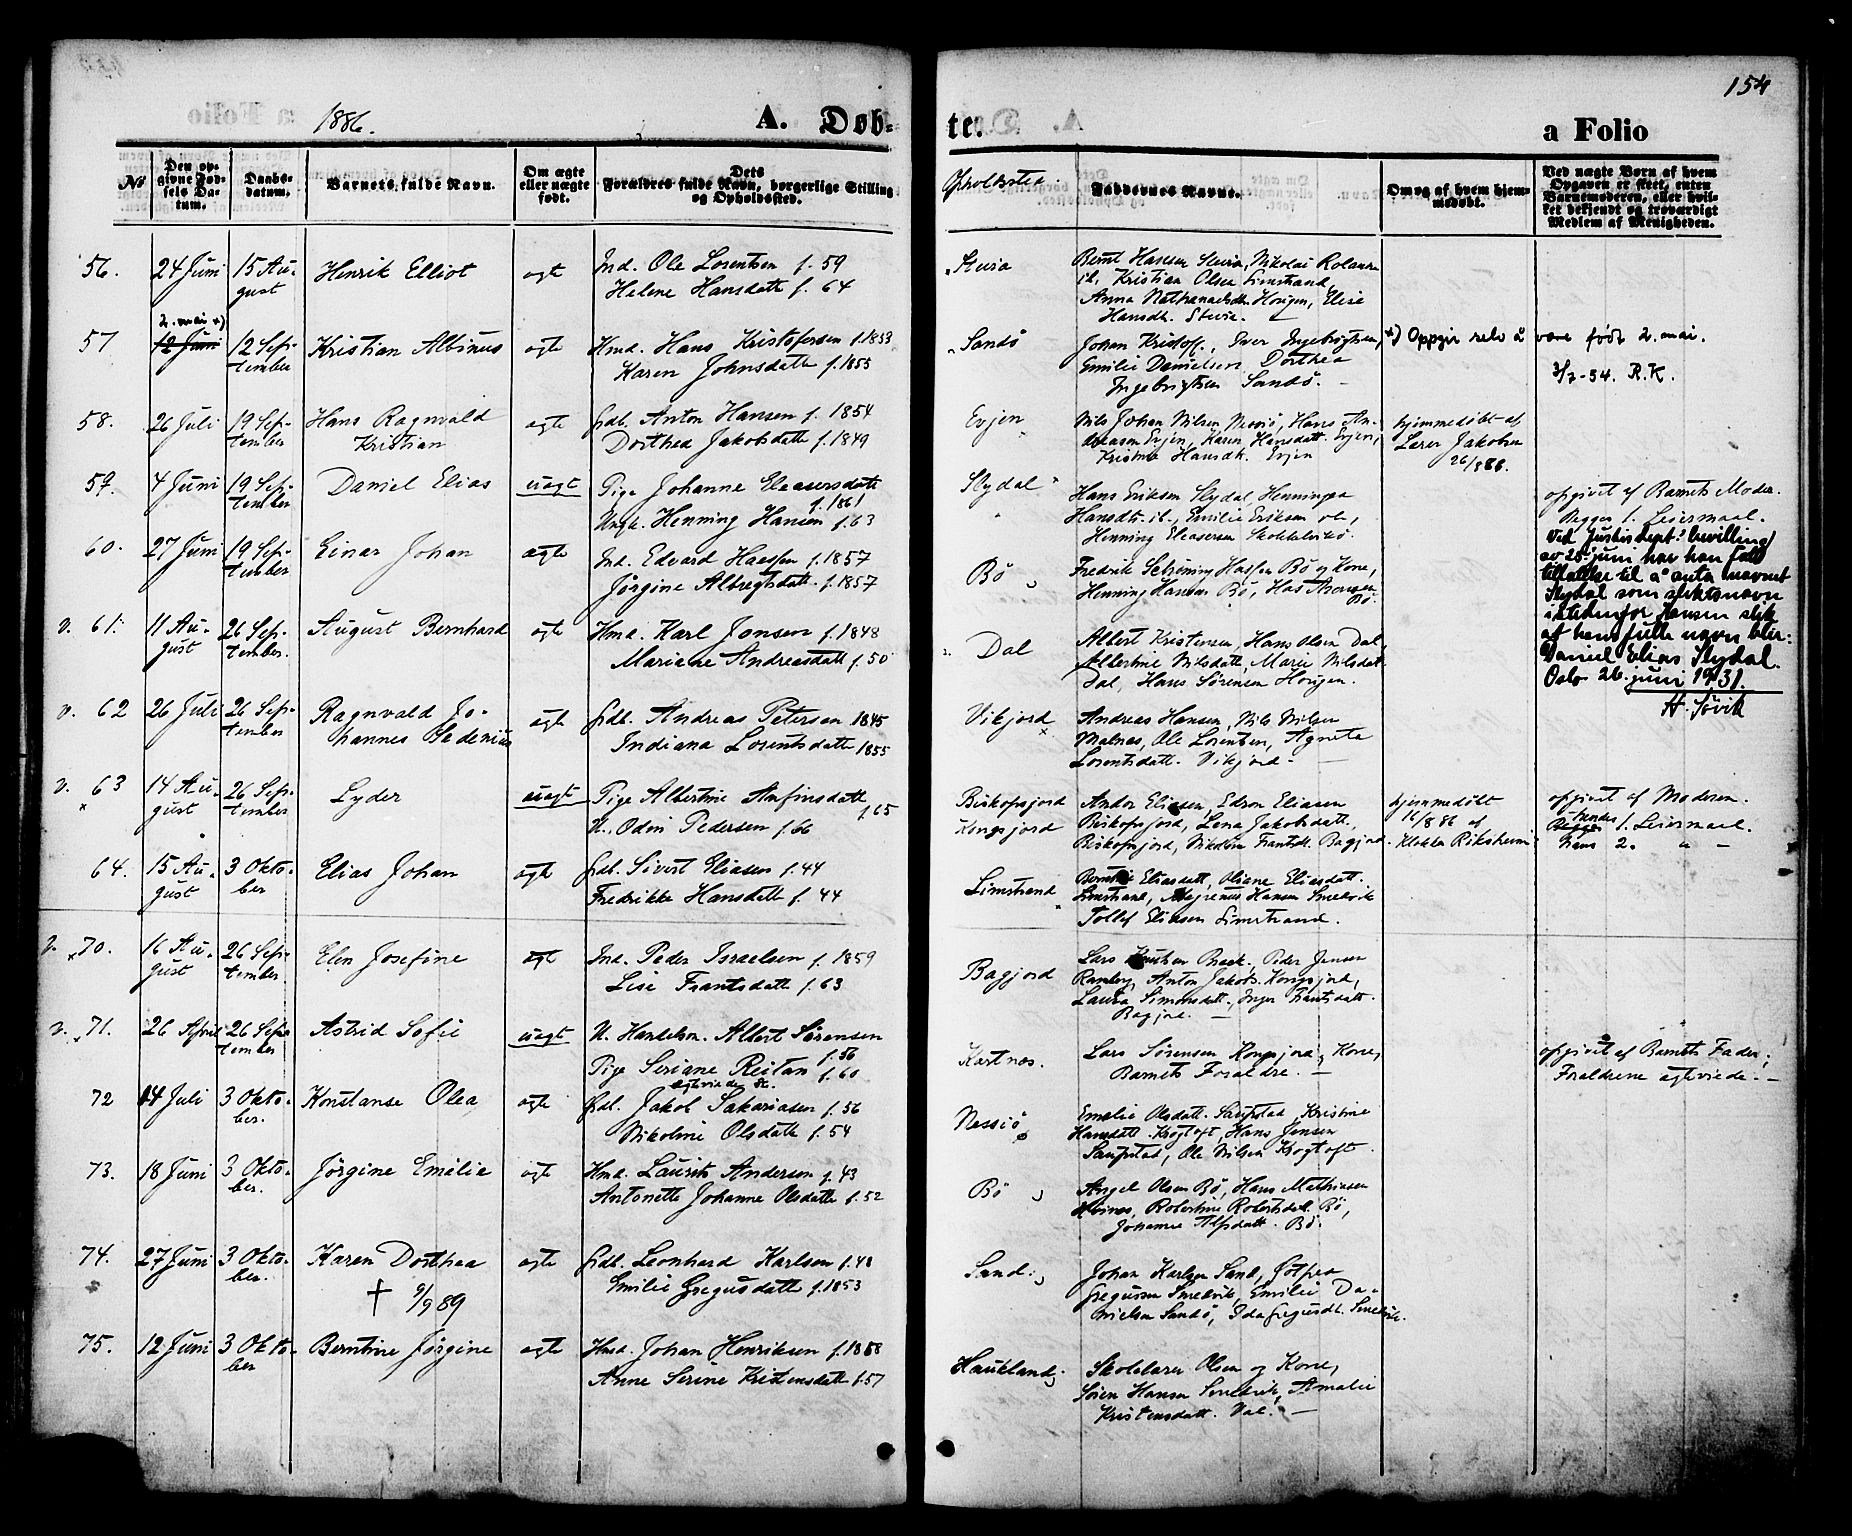 154
1886.
A. Døb-
te.
a Folio
No
Den op-
givne Fød-
sels Da-
tum.
Daabs-
datum.
Barnets fulde Navn.
Om ægte
eller uægte
født.
Dets
Forældres fulde Navn, borgerlige Stilling
og Opholdssted.
Opholdssted.
Faddernes Navne.
Om og af hvem hjem-
medøbt.
Ved uægte Børn af hvem
Opgaven er skeet, enten
Barnemoderen, eller hvil-
ket bekjendt og troværdigt
Medlem af Menigheden.
56. 24 Juni 15 Au-
gust
Henrik Elliot
ægte
Ind. Ole Lorentsen f. 59
Halene Hansdatt f. 64
Steira
Bernt Hansen Steira, Nikolai
ib, Kristian Olsen Limstrand,
Anna Nathanaelsdtt. Horgen, Elise
Hansdt. Steire.
57 2. mai x)
12 Juni
12 Sep-
tember
Kristian Albinus
ægte
Hmd. Hans Kristofersen f. 1853
Karen Johnsdatt f. 1855
Sandö
Johan Kristoff., Iver Ingebrigtsen,
Emilie Danielsen Dorthea
Ingebrigtsen Sandö. —
x) Oppgir selv å være født 2. mai.
3/7-54. R.K.
58. 26 Juli 19 Sep-
tember
Hans Ragnvald
Kristian
ægte
Grdb. Anton Hansen f. 1854
Dorthea Jakobsdatt f. 1849
Evjen
Nils Johan Nilsen Nessiö, Hans An-
dreasen Evjen, Karen Hansdatt. Evjen,
Kristine Hansdt. Evjen
hjemmedøbt af
Lærer Jakobsen
26/8 86.
59. 4 Juni 19 Sep-
tember
Daniel Elias
uægt
Pige Johanne Eleasersdatt
f. 1861
Ungk. Henning Hansen f. 63
Slydal
Hans Eriksen Slydal Henningea
Hansdt. ib., Emilie Eriksen ib.,
Henning Eleasersen
opgivet af Barnets Moder.
Begges 1. Leiermaal.
Ved Justisdept.s bevilling
av 25 juni har han fått
tillatelse til å anta navnet
Slydal som slektsnavn
istedenfor Hansen slik
at hans fulle navn blir:
Daniel Elias Slydal.
Oslo 26. juni 1931.
H. Søvik
60. 27 Juni 19 Sep-
tember
Einar Johan
ægte
Ind. Edvard Hassen f. 1857
Jörgine Albregtsdatt. f. 1857
Bö
Fredrik Schröning Hassen Bö og Kone,
Henning Hansen Bö, Has Aronsen
Bö.
v. 61. 11 Au-
gust
26 Sep-
tember.
August Bernhard
ægte
Hmd. Karl Jonsen f. 1848
Mariane Andreasdatt f. 50
Dal
Albert Kristensen, Hans Olsen Dal,
Albertine Nilsdatt, Maren Nilsdatt
Dal, Hans Sørensen Horgen.
v. 62 26 Juli 26 Sep-
tember
Ragnvald Jo-
hannes Pedenius
ægte
Grdb. Andreas Petersen 1845
Indiana Lorentsdatt 1855
Vikjord
x
Andreas Hansen, Nils Nilsen
Malnes, Ole Lorentsen, Agneta
Lorentsdatt. Vikjord. —
v. 63
x
14 Au-
gust
26 Sep-
tember
Lyder
uægt
Pige Albertine Anfinsdatt
f. 65
U. Odin Pedersen f. 66
Biskopsjord
Kongsjord
Andor Eliasen, Edron Eliasen
Biskopsjord, Lena Jakobsdatt,
Biskopsjord, Nikoline Frantsdt. Bagjord.
hjemmedøbt
16/8 86 af
Klokker Riksheim
opgivet af Moderen.
Hendes
Begges 1. Leiermaal.
hans 2. " —
64. 15 Au-
gust
3 Okto-
ber
Elias Johan
ægte
Grdb. Sivert Eliasen f. 44
Fredrikke Hansdatt f. 44
Limstrand
Berntine Eliasdatt, Oliane Eliasdatt.
Limstrand, Hansen Smedvik
Tollef Eliasen Limstrand.
v. x70. 16 Au-
gust
26 Sep-
tember
Elen Josefine
ægt
Ind. Peder Israelsen f. 1859
Lise Frantsdatt f. 63
Bagjord
Lars Knutsen Baek. Peder Jensen
Ramberg, Anton Jakobs. Kongsjord,
Laura Simonsdatt., Inger Frantsdatt.
Bagjord. —
v. x71. 26 April 26 Sep-
tember
Astrid Sofie
uægt
U. Handelsm. Albert Sørensen
f. 56
Pige Seriane Reitan f. 60
ægteviede
Kartnes.
Lars Sørensen Kongsjord, Kone,
Barnets Forældre. —
opgivet af Barnets Fader;
Forældrene ægteviede. —
72 14 Juli 3 Okto-
ber.
Konstanse Olea
ægte
Grdb. Jakob Sakariasen f. 56
Nikoline Olsdatt f. 54
Nessiö
Emelie Olsdatt. Saupstad Kristine
Hansdatt. Krogtoft, Hans Jensen
Saupstad, Ole Nilsen Krogtoft.
73. 18 Juni 3 Okto-
ber.
Jörgine Emelie
ægte
Hmd. Laurits Andersen f. 43
Antonette Johanne Olsdatt f. 52
Bö
Angel Olsen Bö, Hans Mathiasen
Hoines, Robertine Robertsdt. Bö,
Johanne Alfsdatt. Bö.
74. 27 Juni 3 Okto-
ber.
Karen Dorthea
† 9/9 89
ægte
Grdb. Leonhard Karlsen f. 48
Emilie Gregusdatt f. 1853
Sand.
Johan Karlsen Sand, Jötfrea
Gregussen Smedvik, Emilie Da-
nielsen Sandö, Ida Gregusdt. Smedvik.
75. 12 Juni 3 Okto-
ber
Berntine Jørgine
ægte
Hmd. Johan Henriksen f. 1858
Anne Serine Kristensdatt f. 57
Haukland
Skolelærer Olsen og Kone,
Søren Hansen Smedvik, Amalie
Kristensdatt. Val. —